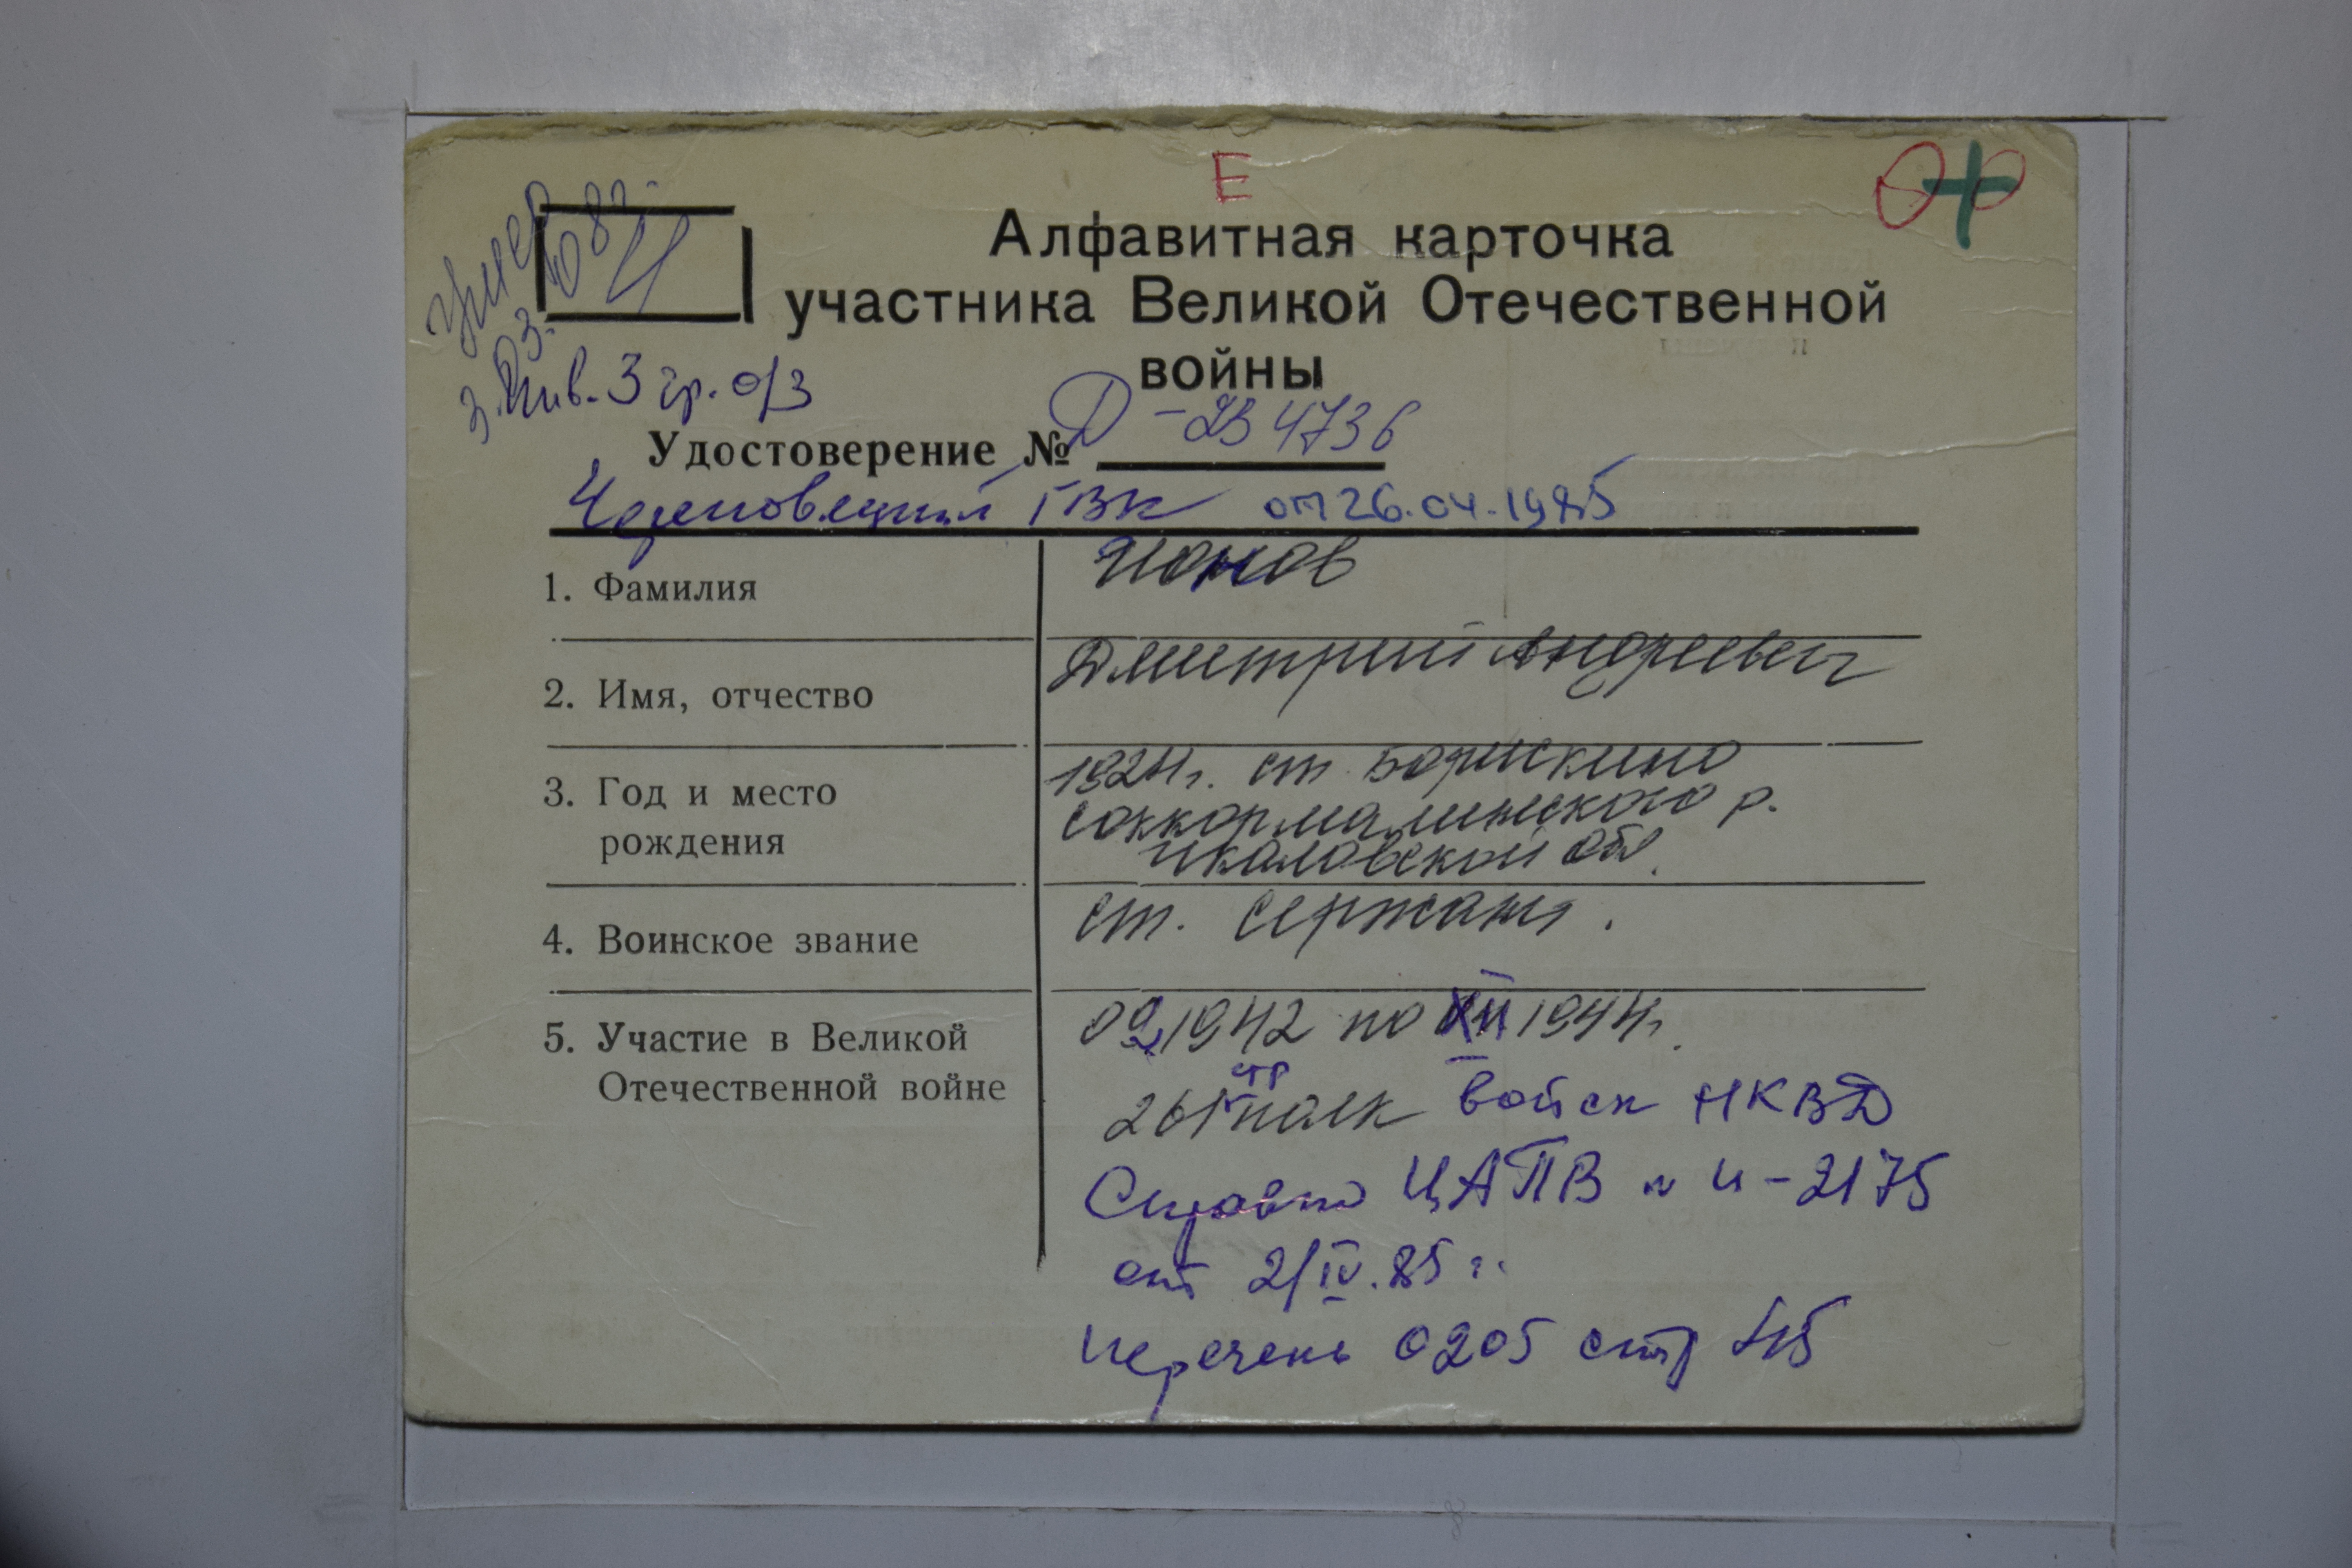 Е
Алфавитная карточка
участника Великой Отечественной
войны
умер
И
Инв. 3 гр. о/з
Удостоверение № Д - 234736
Черновецкий ГВК от 26.04.1985
1. Фамилия
Ионов
2. Имя, отчество
Дмитрий Андреевич
3. Год и место
рождения
1924г. ст. Борискино
Соккармалинского р.
Чкаловской обл.
4. Воинское звание
ст. сержант.
5. Участие в Великой
Отечественной войне
09.1942 по XII 1944г.
стр
261 полк войск НКВД
Справка ЦАПВ № И-2175
от 2/IV.85 г.
Перечень 0205 стр 45